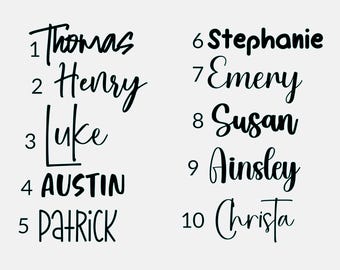 1 Thomas
2 Henry
3 Luke
4 AUSTIN
5 PatRICK
6 Stephanie
7 Emery
8 Susan
9 Ainsley
10 Christa